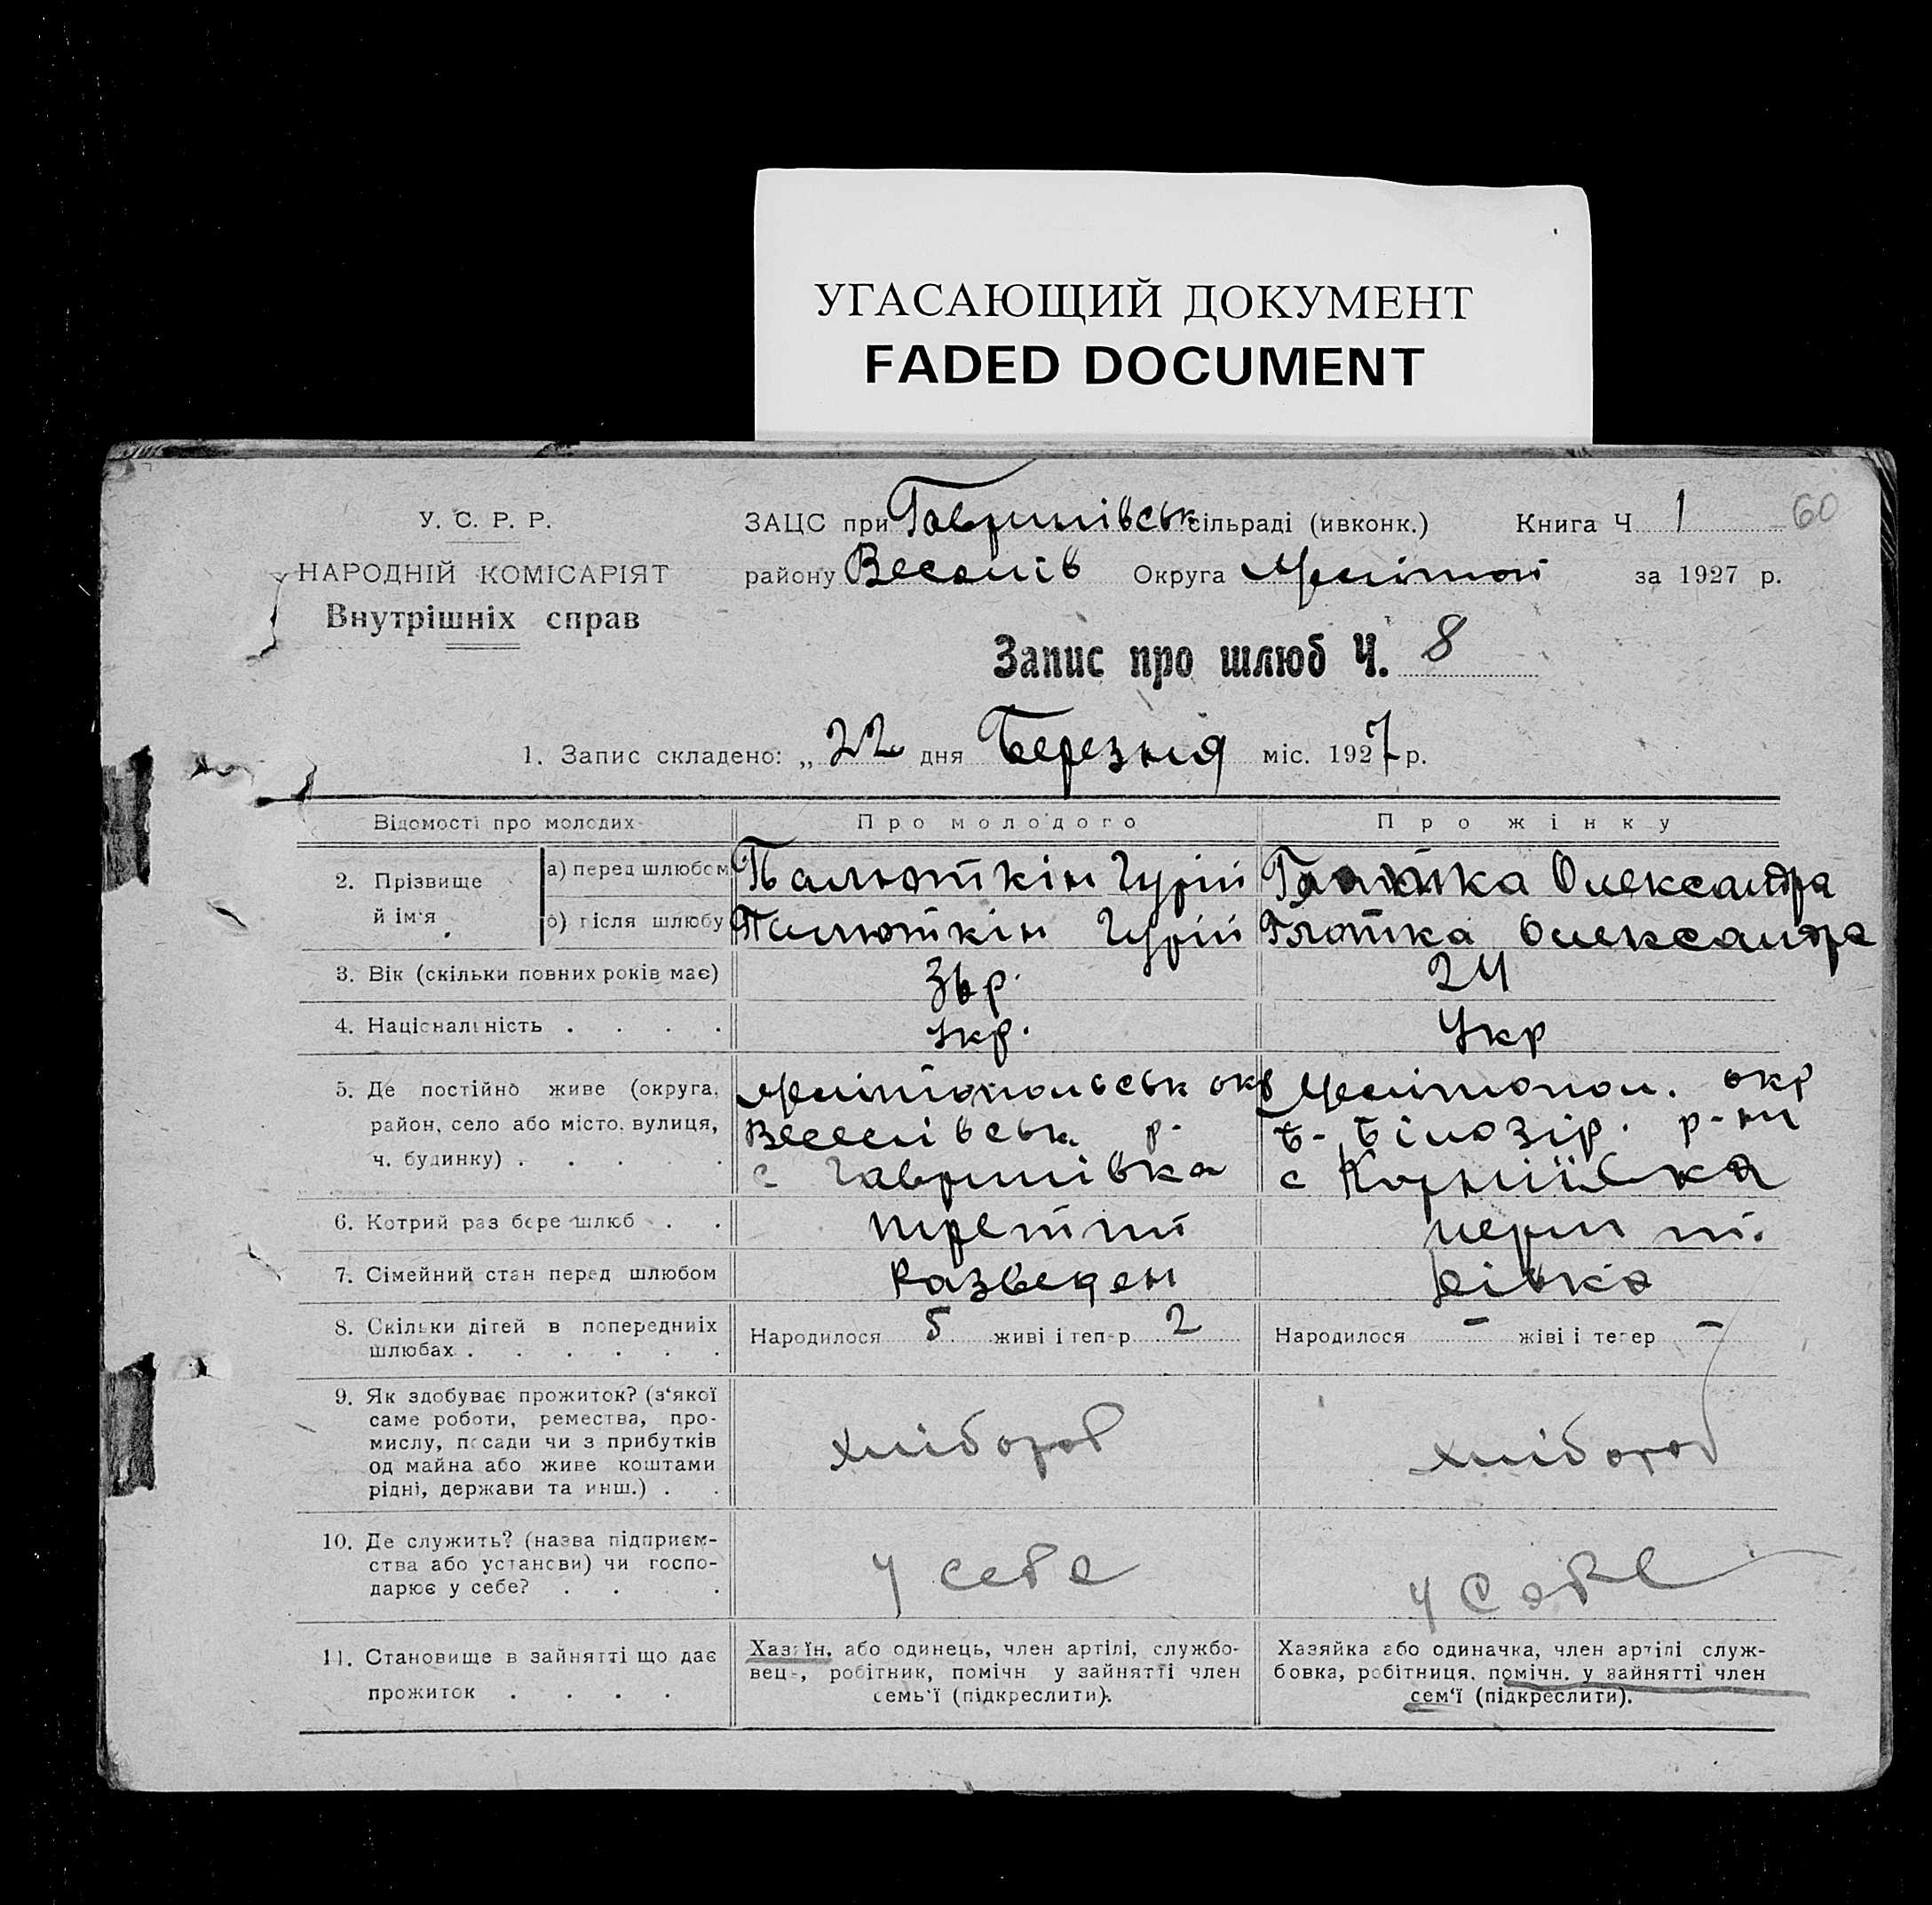 УГАСАЮЩИЙ ДОКУМЕНТ
FADED DOCUMENT
У. С. Р. Р.
НАРОДНІЙ КОМІСАРІЯТ
Внутрішніх справ
ЗАЦС при Гаврилівськ сільраді (ивконк.) Книга Ч 1 60
району Веселів Округа Мелітоп за 1927 р.
Запис про шлюб Ч. 8
1. Запис складено: „ 22 дня Березня міс. 1927 р.
Відомості про молодих Про молодого Про жінку
2. Прізвище й ім'я
а) перед шлюбом Палюткін Гурій Глотка Олександра
б) після шлюбу Палюткін Гурій Глотка Олександра
3. Вік (скільки повних років має) 24
4. Національність . . . . Укр. Укр
5. Де постійно живе (округа, Мелітопольськ окр Мелітопол. окр
район, село або місто, вулиця, Веселівськ р- В.-Білозір. р-ни
ч. будинку) . . . . . с Гаврилівка с Корніївка
6. Котрий раз бере шлюб . . третий перши
7. Сімейний стан перед шлюбом Разведен Дівка
8. Скільки дітей в попередниіх Народилося 5 живі і тепер 2 Народилося - жіві і тепер -
шлюбах . . . . . .
9. Як здобуває прожиток? (з'якої
саме роботи, ремества, про-
мислу, посади чи з прибутків хлібороб хлібороб
од майна або живе коштами
рідні, держави та инш.) . .
10. Де служить? (назва підприєм-
ства або установи) чи госпо- у себе у себе
дарює у себе? . . . .
11. Становище в зайнятті що дає
прожиток . . . .
Хазяїн, або одинець, член артілі, службо-
вець, робітник, помічн у зайнятті член
семь'ї (підкреслити).
Хазяйка або одиначка, член артілі служ-
бовка, робітниця, помічн. у зайнятті член
сем'ї (підкреслити).